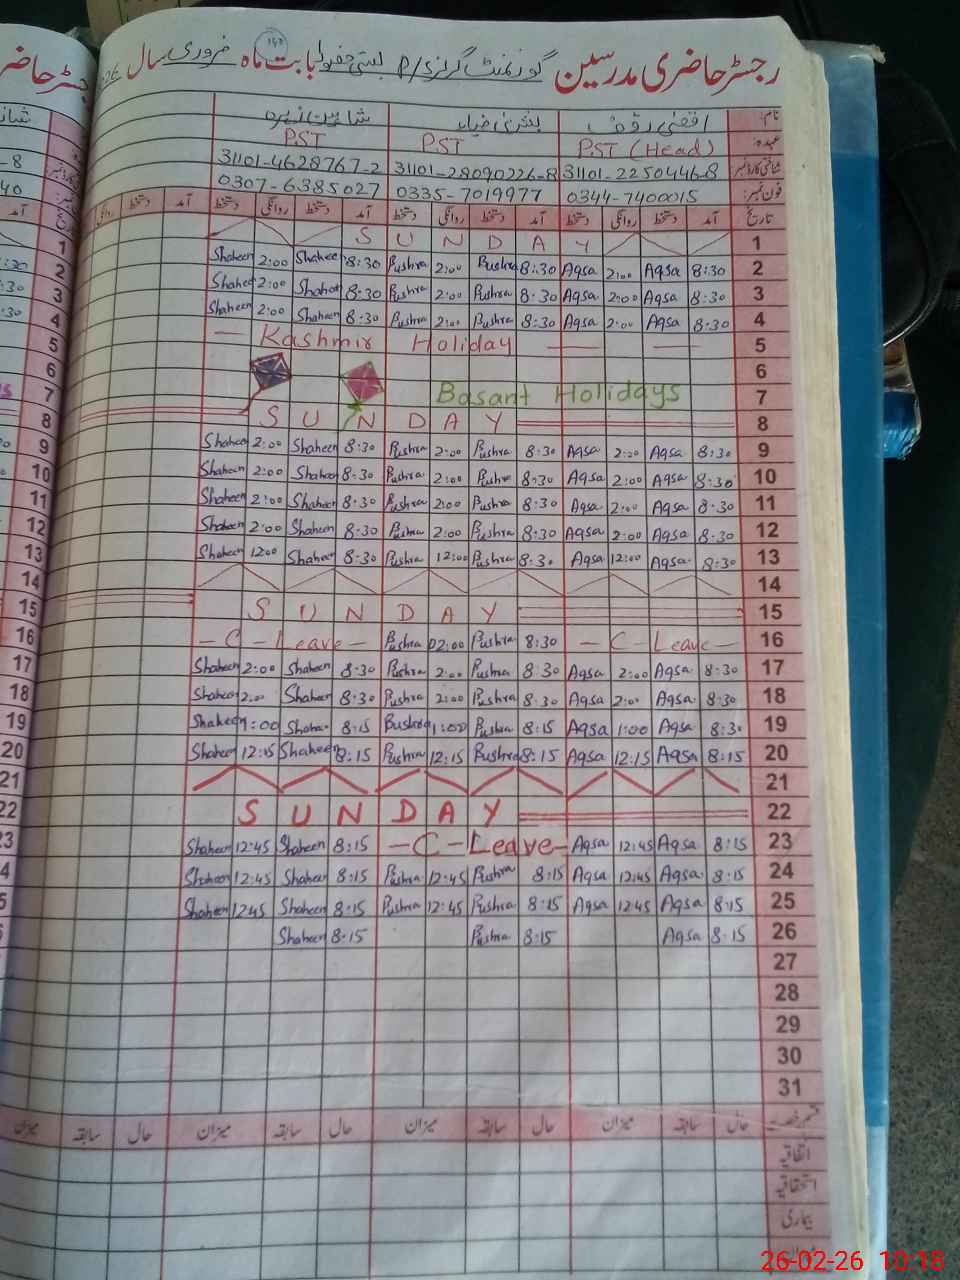 رجسٹر حاضری مدرسین گورنمنٹ گرلز P/ بستی بابت ماہ فروری سال 26
نام: اقصیٰ بشریٰ شاہین
عہدہ: PST (Head) PST PST
شناختی کارڈ نمبر 31101-2250446-8 31101-28090226-8 31101-4628767-2
فون نمبر: 0344-7400015 0335-7019977 0307-6385027
تاریخ آمد دستخط روانگی دستخط آمد دستخط روانگی دستخط آمد دستخط روانگی دستخط آمد دستخط روانگی
S U N D A Y 1
Shaheen 2:00 Shaheen 8:30 Bushra 2:00 Bushra 8:30 Aqsa 2:00 Aqsa 8:30 2
Shaheen 2:00 Shaheen 8:30 Bushra 2:00 Bushra 8:30 Aqsa 2:00 Aqsa 8:30 3
Shaheen 2:00 Shaheen 8:30 Bushra 2:00 Bushra 8:30 Aqsa 2:00 Aqsa 8:30 4
— Kashmir Holiday — — 5
6
Basant Holidays 7
S U N D A Y 8
Shaheen 2:00 Shaheen 8:30 Bushra 2:00 Bushra 8:30 Aqsa 2:00 Aqsa 8:30 9
Shaheen 2:00 Shaheen 8:30 Bushra 2:00 Bushra 8:30 Aqsa 2:00 Aqsa 8:30 10
Shaheen 2:00 Shaheen 8:30 Bushra 2:00 Bushra 8:30 Aqsa 2:00 Aqsa 8:30 11
Shaheen 2:00 Shaheen 8:30 Bushra 2:00 Bushra 8:30 Aqsa 2:00 Aqsa 8:30 12
Shaheen 12:00 Shaheen 8:30 Bushra 12:00 Bushra 8:30 Aqsa 12:00 Aqsa 8:30 13
14
S U N D A Y 15
— C - Leave — Bushra 02:00 Bushra 8:30 — C - Leave — 16
Shaheen 2:00 Shaheen 8:30 Bushra 2:00 Bushra 8:30 Aqsa 2:00 Aqsa 8:30 17
Shaheen 2:00 Shaheen 8:30 Bushra 2:00 Bushra 8:30 Aqsa 2:00 Aqsa 8:30 18
Shaheen 1:00 Shaheen 8:15 Bushra 1:00 Bushra 8:15 Aqsa 1:00 Aqsa 8:30 19
Shaheen 12:15 Shaheen 8:15 Bushra 12:15 Bushra 8:15 Aqsa 12:15 Aqsa 8:15 20
21
S U N D A Y 22
Shaheen 12:45 Shaheen 8:15 — C - Leave — Aqsa 12:45 Aqsa 8:15 23
Shaheen 12:45 Shaheen 8:15 Bushra 12:45 Bushra 8:15 Aqsa 12:45 Aqsa 8:15 24
Shaheen 12:45 Shaheen 8:15 Bushra 12:45 Bushra 8:15 Aqsa 12:45 Aqsa 8:15 25
Shaheen 8:15 Bushra 8:15 Aqsa 8:15 26
27
28
29
30
31
حال سابقہ میزان حال سابقہ میزان حال سابقہ میزان حال سابقہ میزان
اتفاقیہ
استحقاقیہ
بیماری
26-02-26 10:18